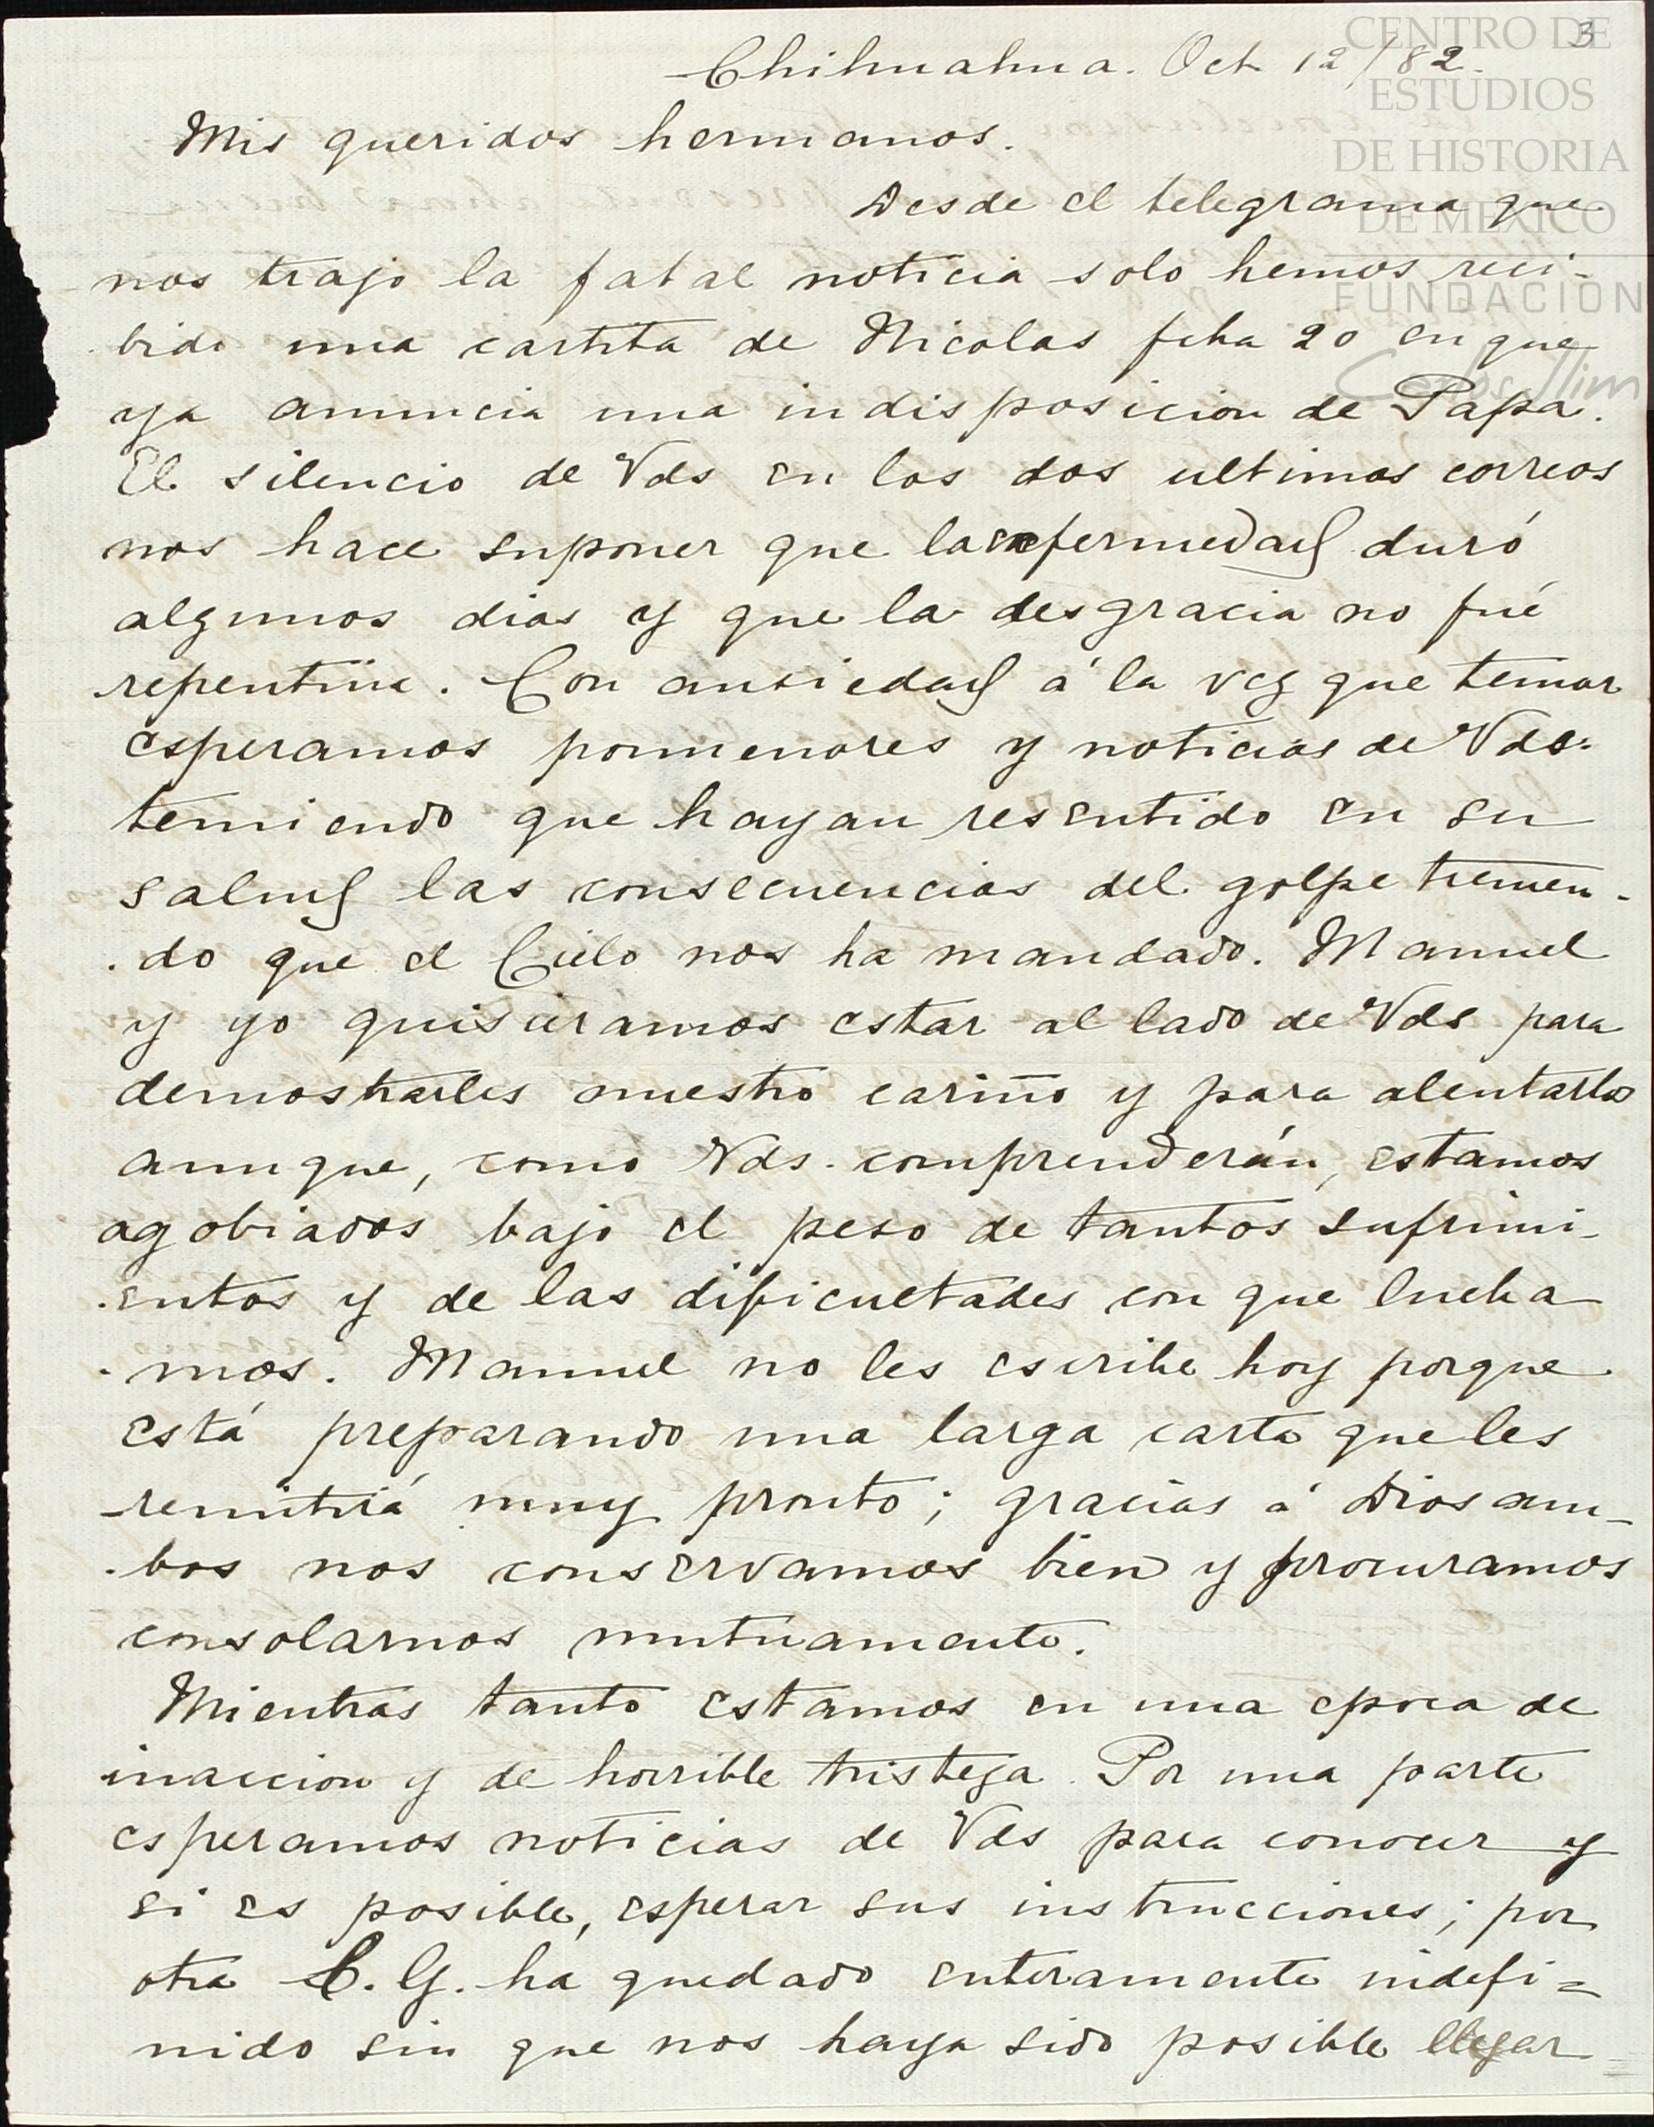 3
CENTRO DE
ESTUDIOS
DE HISTORIA
DE MÉXICO
FUNDACIÓN
Carlos Slim
Chihuahua. Oct 12/82.
Mis queridos hermanos.
Desde el telegrama que
nos trajo la fatal noticia solo hemos reci-
bido una cartita de Nicolas fcha 20 en que
ya anuncia una indisposicion de Papa.
El silencio de Vds en los dos ultimos correos
nos hace suponer que la enfermedad duró
algunos dias y que la desgracia no fué
repentina. Con ansiedad á la vez que temor
esperamos pormenores y noticias de Vds.
temiendo que hayan resentido en su
salud las consecuencias del golpe tremen-
do que el Cielo nos ha mandado. Manuel
y yo quisieramos estar al lado de Vds para
demostrarles nuestro cariño y para alentarlos
aunque, como Vds. comprenderán, estamos
agobiados bajo el peso de tantos sufrimi-
entos y de las dificultades con que lucha
mos. Manuel no les escribe hoy porque
está preparando una larga carta que les
remitirá muy pronto; gracias á Dios am-
bos nos conservamos bien y procuramos
consolarnos mutuamente.
Mientras tanto estamos en una epoca de
inaccion y de horrible tristeza. Por una parte
esperamos noticias de Vds para conocer y
si es posible, esperar sus instrucciones; por
otra C. G. ha quedado enteramente indefi=
nido sin que nos haya sido posible llegar